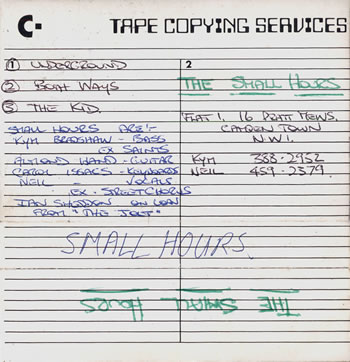 C- TAPE COPYING SERVICES
① UNDERGROUND
② BOAT WAYS
③ THE KID
SMALL HOURS ARE:-
KYM BRADSHAW - BASS
EX SAINTS
ARMAND HAND - GUITAR
CAROL ISAACS - KEYBOARDS
NEIL - VOCALS
EX - STREETCHORUS
IAN SHEDDEN ON LOAN
FROM "THE JOLT"
2
THE SMALL HOURS
FLAT 1. 16 PRATT MEWS.
CAMDEN TOWN
N.W.1.
KYM 388-2952
NEIL 459-2379
SMALL HOURS
THE SMALL
HOURS